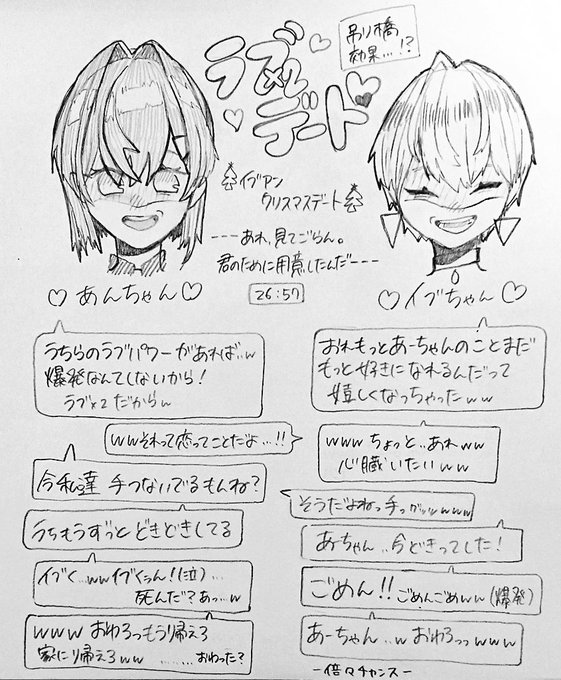 ラブ×2
デート
吊り橋
効果…!?
イブアン
クリスマスデート
---あれ、見てごらん。
君のために用意したんだ---
26:57
♡あんちゃん♡
♡イブちゃん♡
うちらのラブパワーがあれば…w
爆発なんてしないから!
ラブ×2だからw
おれもっとあーちゃんのことまだ
もっと好きになれるんだって
嬉しくなっちゃったww
wwそれって恋ってことだよ…!!
wwwちょっと…あれww
心臓いたいww
今私達 手つないでるもんね?
そうだよねっ手っwww
うちもうずっと どきどきしてる
あーちゃん..今どきってした!
イブく…wwイブくぅん!(泣)…
死んだ?あっ…w
ごめん!!ごめんごめんww(爆発)
www おわろっもう帰えろ
家に帰えろww ……おわった?
あーちゃん..w おわろっっwww
-倍々チャンス-